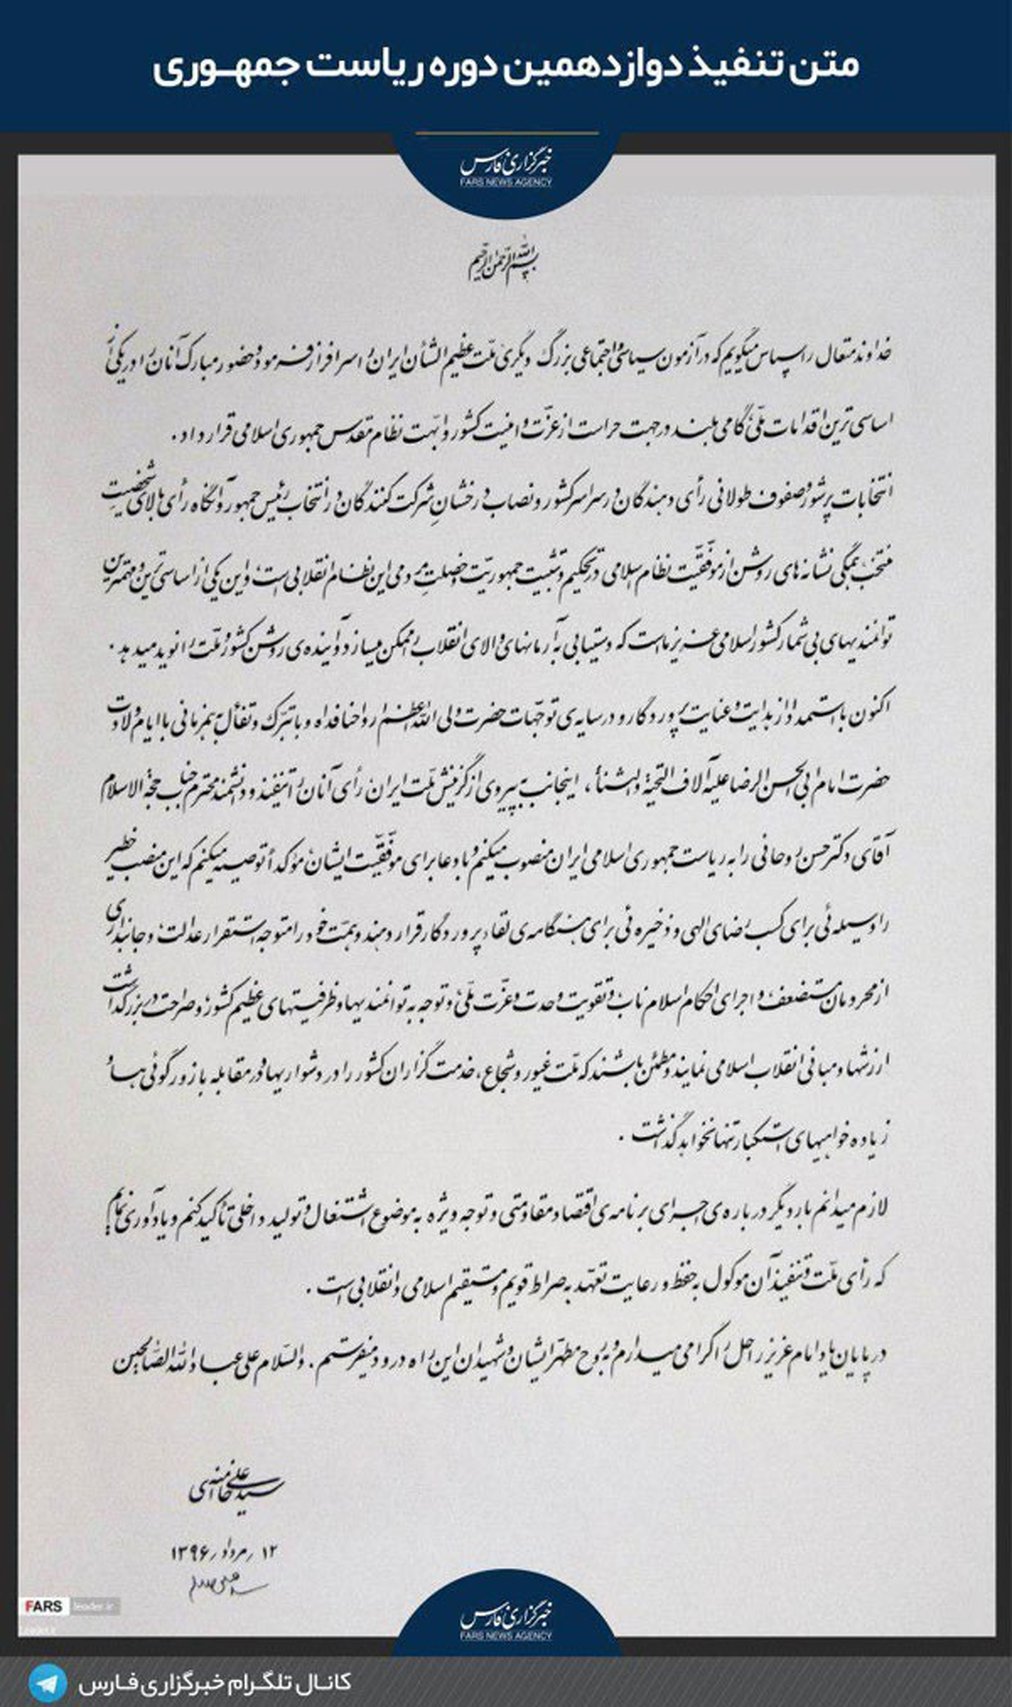 متن تنفیذ دوازدهمین دوره ریاست جمهوری
خبرگزاری فارس
FARS NEWS AGENCY
بسم الله الرحمن الرحیم
خداوند متعال را سپاس میگویم که در آزمون سیاسی و اجتماعی بزرگ دیگری ملّت عظیم‌الشأن ایران را سرافراز فرمود و حضور مبارک آنان را در یکی از
اساسی‌ترین اقدامات ملّی گامی بلند در جهت حراست از عزّت و امنیت کشور و ابّهت نظام مقدّس جمهوری اسلامی قرار داد.
انتخابات پرشور و صفوف طولانی رأی دهندگان در سراسر کشور و نصاب درخشان شرکت کنندگان در انتخاب رئیس جمهور و آنگاه رأی بالای شخصیت
منتخب همگی نشانه‌های روشن از موفّقیّت نظام اسلامی در تحکیم و تثبیت جمهوریّت و خصلت مردمی این نظام انقلابی است و این یکی از اساسی‌ترین و مهمترین
توانمندیهای بی‌شمار کشور اسلامی عزیز ما است که دستیابی به آرمانهای والای انقلاب را ممکن میسازد و آینده‌ی روشن کشور و ملّت را نوید میدهد.
اکنون با استمداد از هدایت و عنایت پروردگار و در سایه‌ی توجّهات حضرت ولی الله الاعظم ارواحنا فداه و با تبرّک و تفأّل به همزمانی با ایام ولادت
حضرت امام ابی‌الحسن الرضا علیه آلاف التحیة و الثناء، اینجانب به پیروی از گزینش ملّت ایران رأی آنان را تنفیذ و دانشمند محترم جناب حجّة الاسلام
آقای دکتر حسن روحانی را به ریاست جمهوری اسلامی ایران منصوب میکنم و با دعا برای موفّقیّت ایشان مؤکداً توصیه میکنم که این منصب خطیر
را وسیله‌ئی برای کسب رضای الهی و ذخیره‌ئی برای هنگامه‌ی لقاء پروردگار قرار دهند و همّت خود را متوجه استقرار عدالت و جانبداری
از محرومان مستضعف و اجرای احکام اسلام ناب و تقویت وحدت و عزّت ملّی و توجه به توانمندیها و ظرفیّتهای عظیم کشور و صراحت در بزرگداشت
ارزشها و مبانی انقلاب اسلامی نمایند و مطمئن باشند که ملّت غیور و شجاع، خدمت گزاران کشور را در دشواریها و در مقابله با زورگوئی‌ها و
زیاده‌خواهیهای استکبار تنها نخواهد گذاشت.
لازم میدانم بار دیگر درباره‌ی اجرای برنامه‌ی اقتصاد مقاومتی و توجه ویژه به موضوع اشتغال و تولید داخلی تأکید کنم و یادآوری نمایم
که رأی ملّت و تنفیذ آن موکول به حفظ و رعایت تعهّد به صراط قویم و مستقیم اسلامی و انقلابی است.
در پایان یاد امام عزیز راحل را گرامی میدارم و به روح مطهّر ایشان و شهیدان این راه درود میفرستم. والسّلام علی عباد الله الصالحین
سید علی خامنه‌ای
۱۲ / مرداد / ۱۳۹۶
FARS
leader.ir
خبرگزاری فارس
FARS NEWS AGENCY
کانال تلگرام خبرگزاری فارس